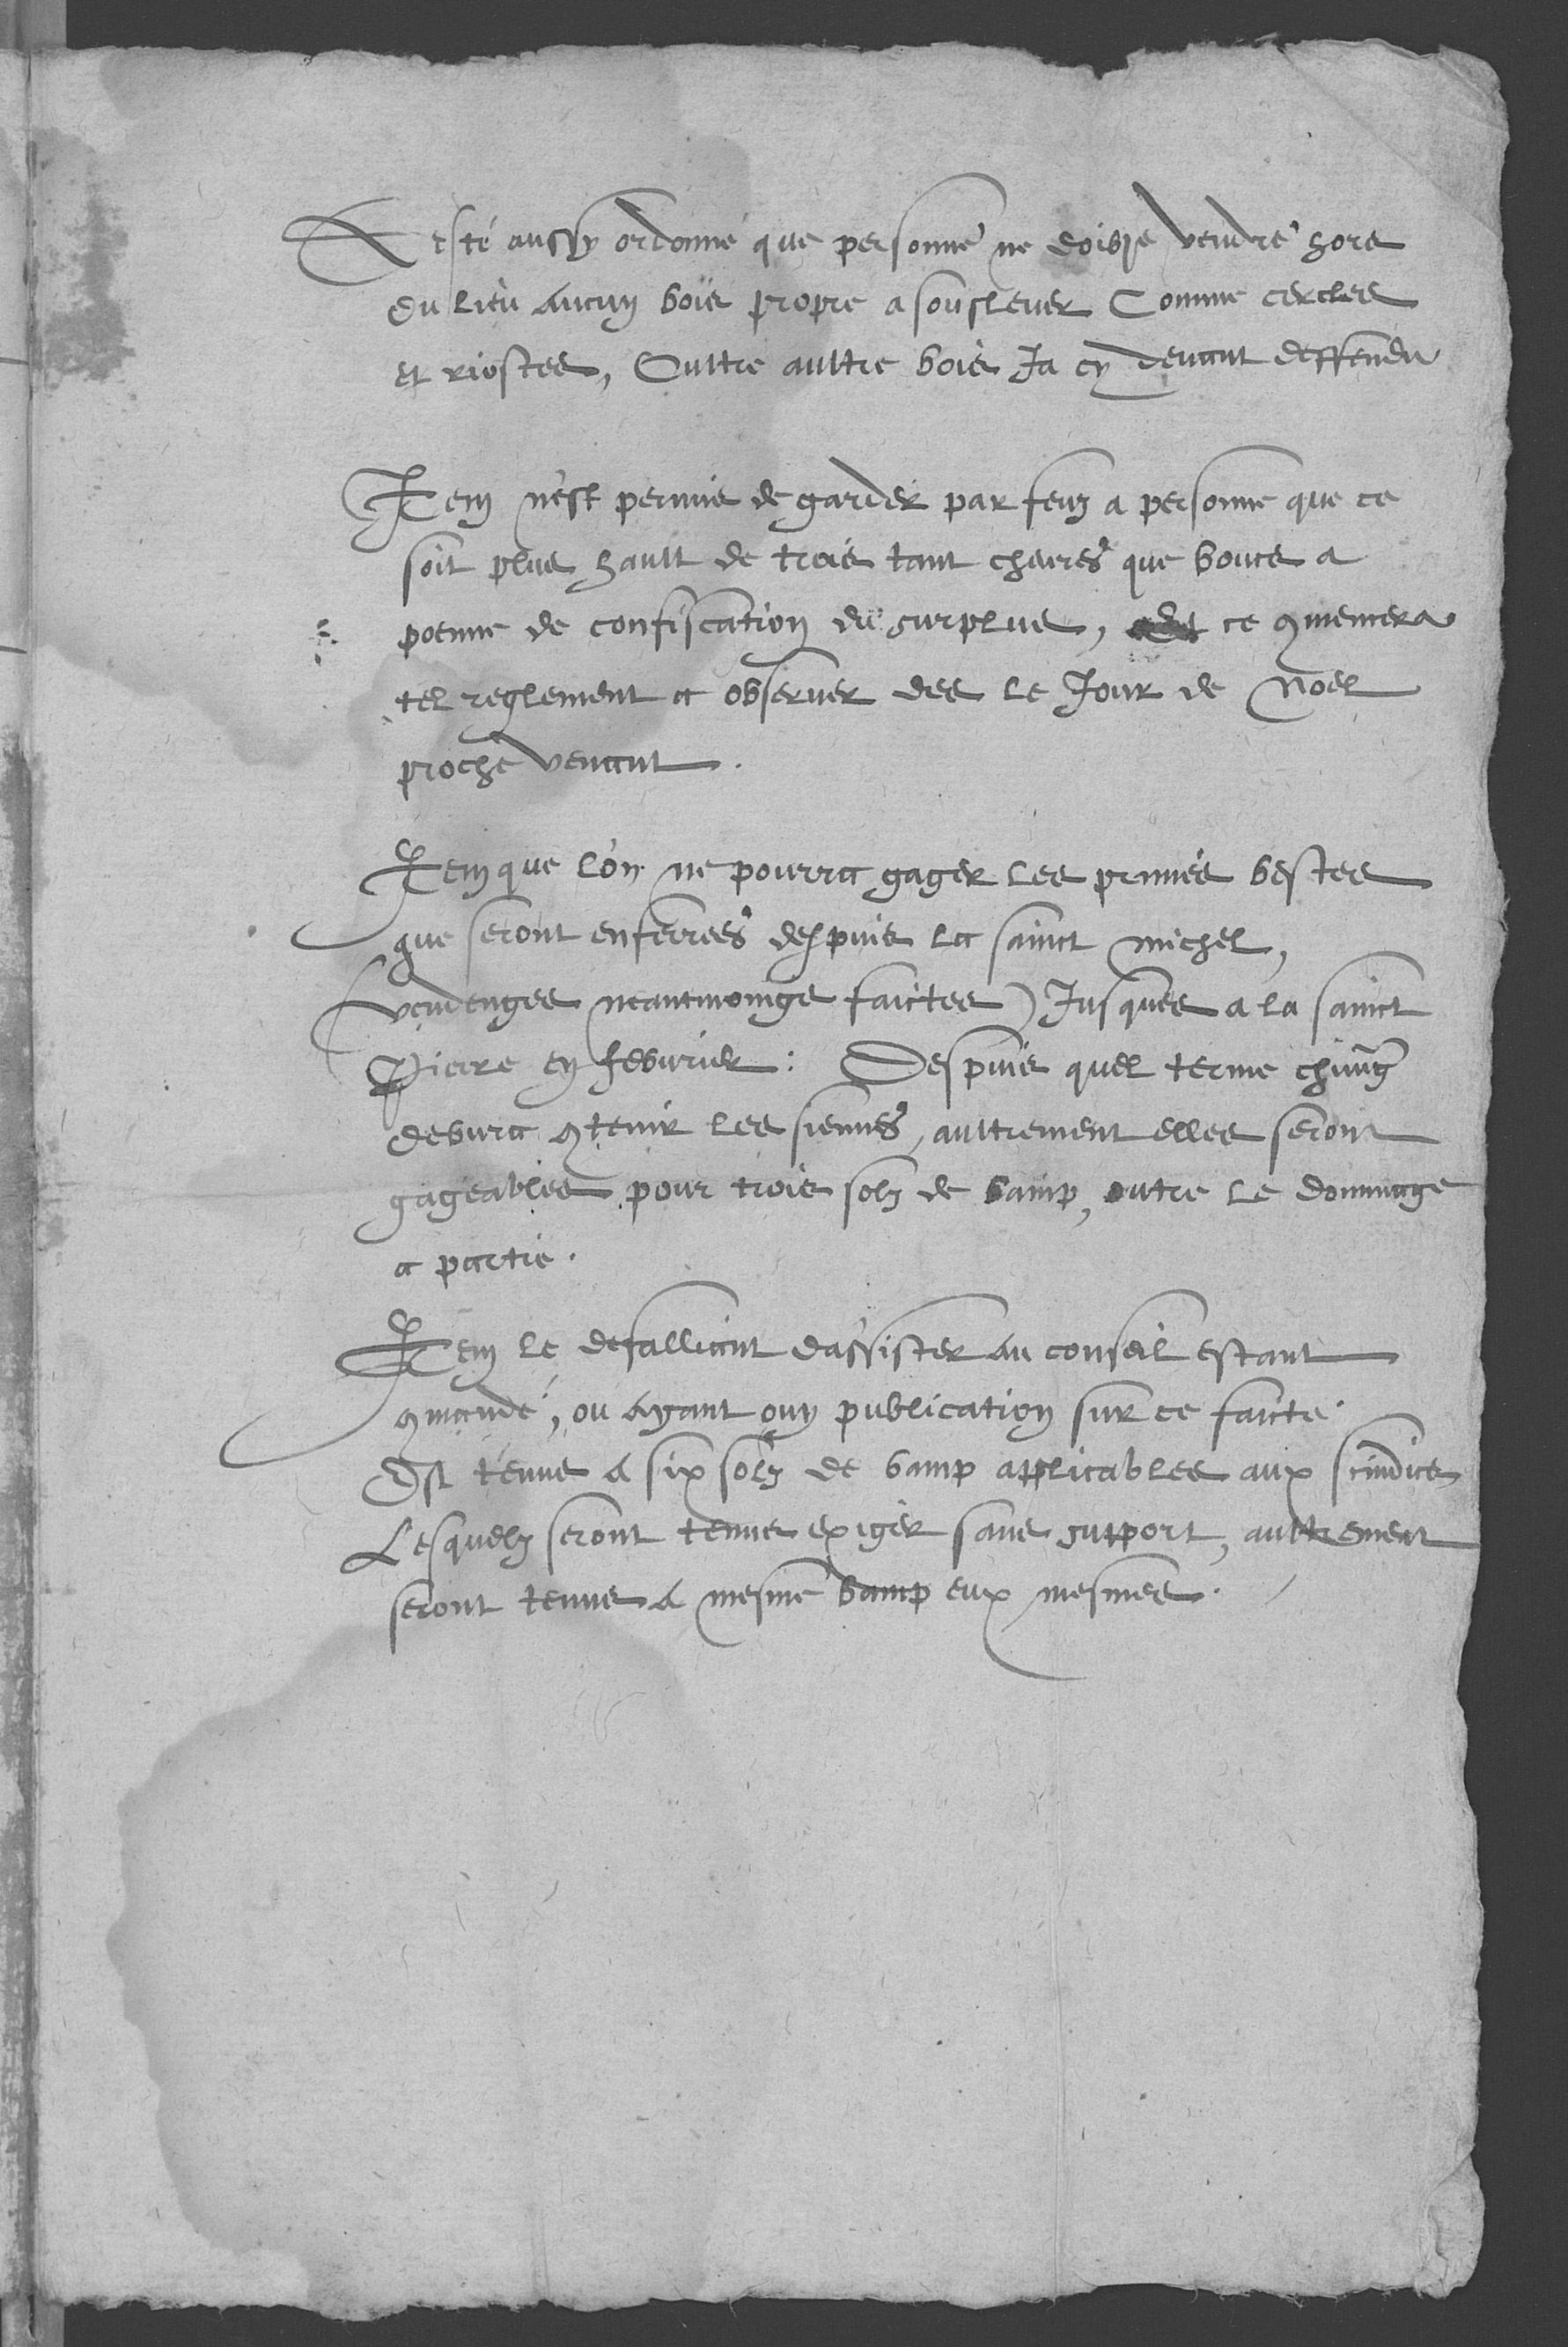 A esté aussy ordonné que personne ne doibje vendre hors
du lieu aucun bois propre a souslever Comme cercles
et riostes, Oultre aultre bois Ja cy devant deffendu
Item n'est permis de garder par feug a personne que ce
soit plus hault de trois tant chevres que boucs a
poenne de confiscation du surplus, ce 9mencera
tel reglement a observer des le Jour de Noel
proche venant.
Item que l'on ne pourra gager les prinses bestes
que seront enferrees despuis la sainct michel,
(vendenges neantmoings faictes) Jusques a la sainct
Pierre en febvrier: Despuis quel terme chũng
debvra 9tenir les siennes, aultrement elles seront
gageables pour trois solz de bamp, outre le dommage
a partie.
Item le defalliant d'assister au conseil estant
9mandé, ou ayant ouy publication sur ce faicte.
Est tenus a six solz de bamp applicables aux sindics
Lesquelz seront tenus exiger sans support, aultrement
seront tenus a mesme bamp eux mesmes.